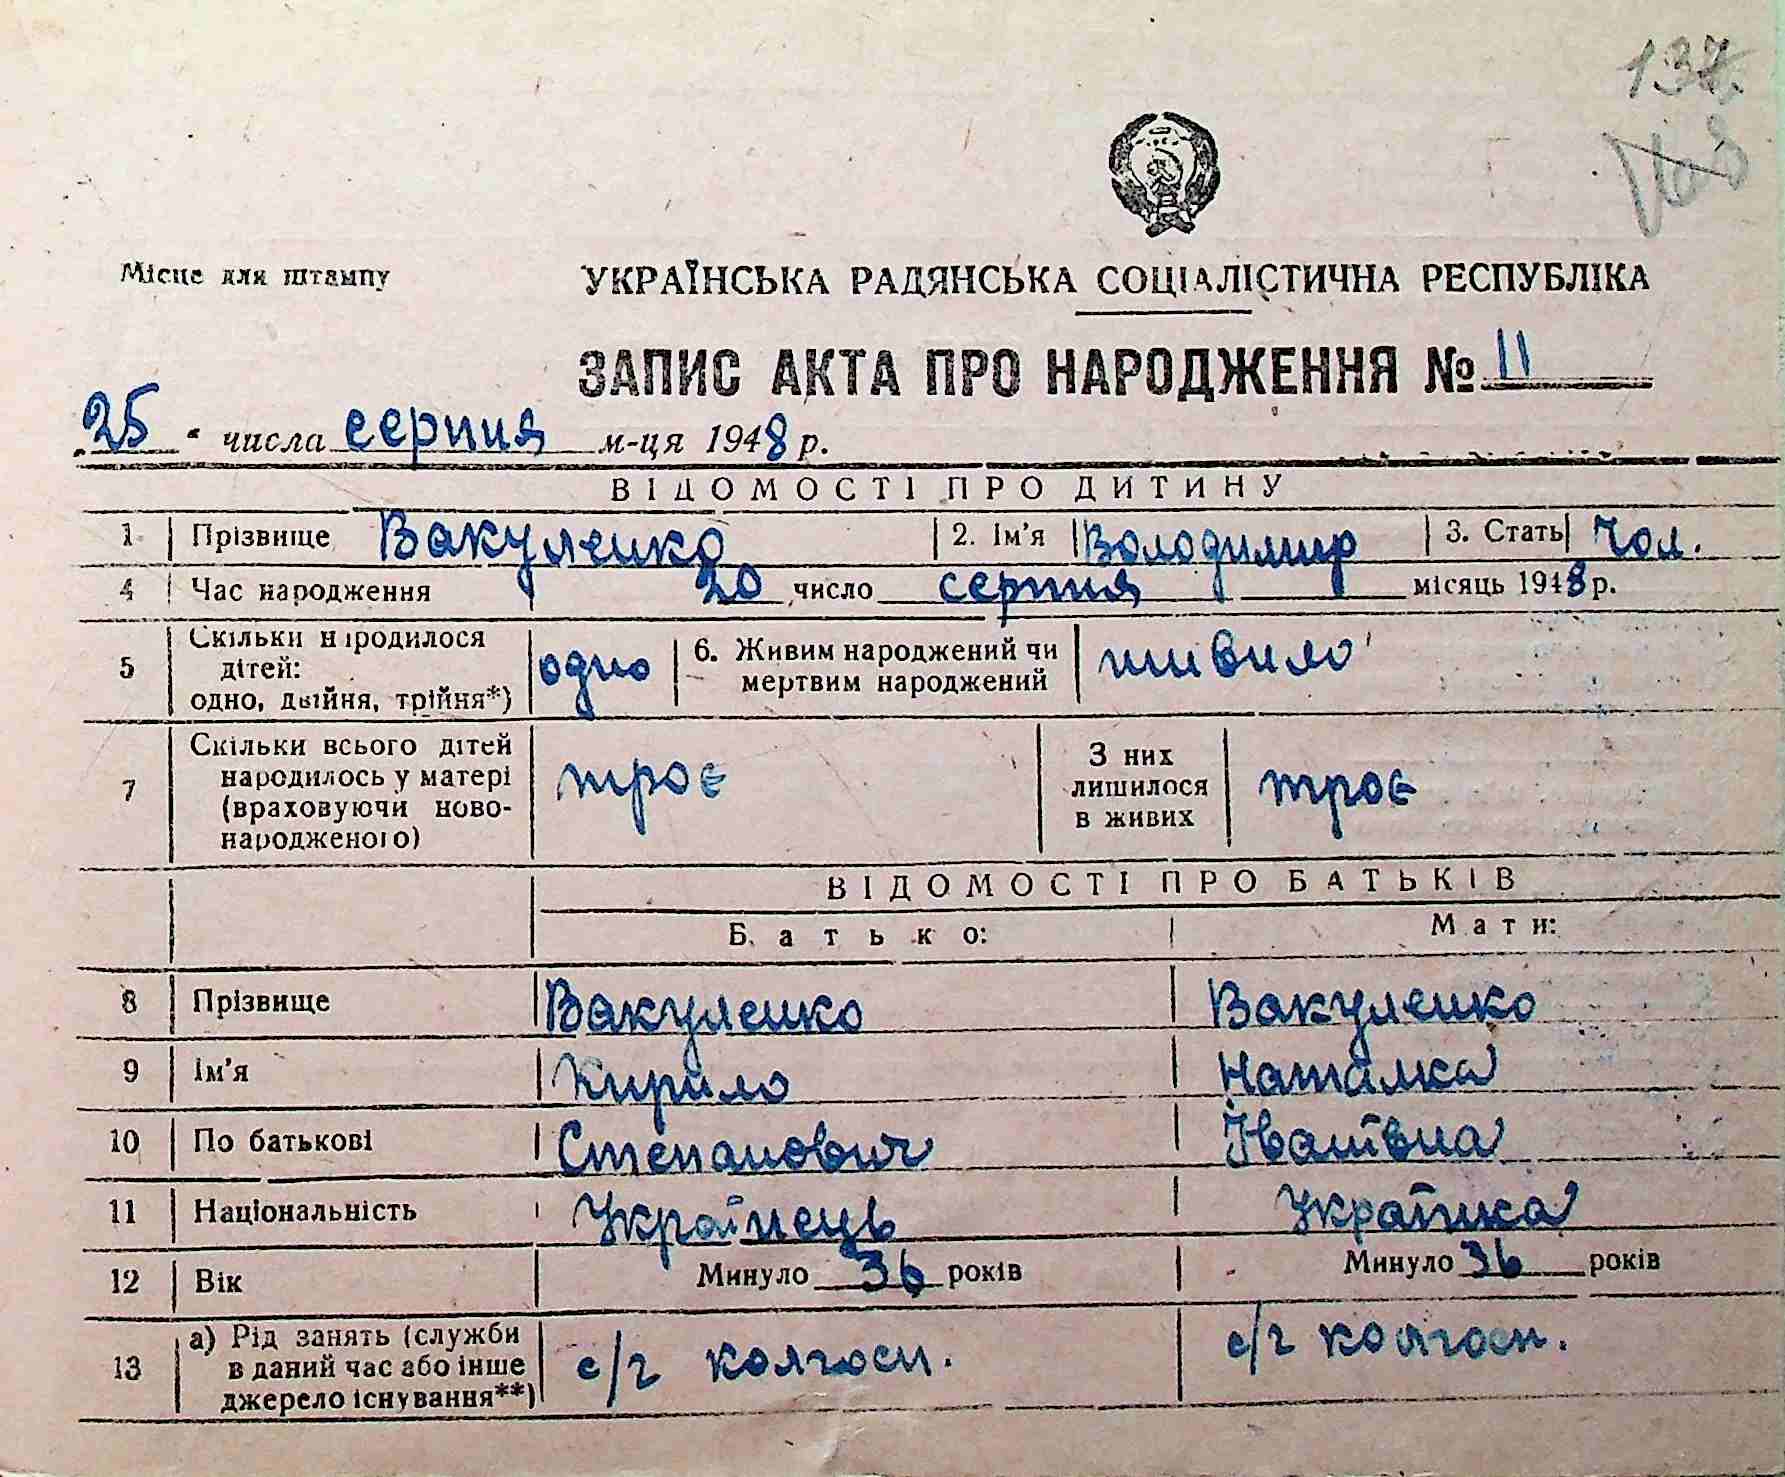 137.
Місце для штампу
УКРАЇНСЬКА РАДЯНСЬКА СОЦІАЛІСТИЧНА РЕСПУБЛІКА
ЗАПИС АКТА ПРО НАРОДЖЕННЯ № 11
25 числа серпня м-ця 1948 р.
ВІДОМОСТІ ПРО ДИТИНУ
1 Прізвище Вакуленко 2. Ім'я Володимир 3. Стать Чол.
4 Час народження 20 число серпня місяць 1948 р.
5 Скільки народилося дітей: одно, двійня, трійня*) одно 6. Живим народжений чи мертвим народжений живило
7 Скільки всього дітей народилось у матері (враховуючи ново-народженого) троє З них лишилося в живих троє
ВІДОМОСТІ ПРО БАТЬКІВ
Батько: Мати:
8 Прізвище Вакуленко Вакуленко
9 Ім'я Кирило Наталка
10 По батькові Степанович Іванівна
11 Національність Українець Українка
12 Вік Минуло 36 років Минуло 36 років
13 а) Рід занять (служби в даний час або інше джерело існування**) с/г колгосп. с/г колгосп.